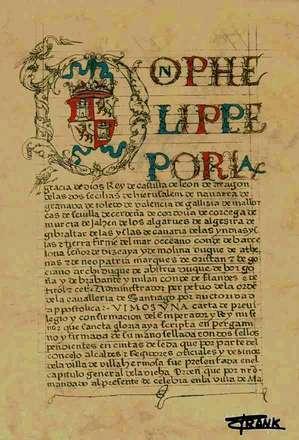 DON PHE
LIPPE
POR LA
gracia de dios Rey de castilla de leon de aragon
de las dos secilias de hierusalem de navarra de
granada de toledo de valencia de gallizia de mallor
cas de sevilla de cerdeña de cordova de corcega de
murcia de jahen de los algarbes de algezira de
gibraltar de las yslas de canaria de las yndias ys
las & tierra firme del mar oceano conde de barce
lona señor de vizcaya y de molina duque de athe
nas & de neopatria marques de oristan & de go
ciano archiduque de abstria duque de borgo
ña y de brabante y milan conde de flandes &
de tirol & Administrador perpetuo de la orden
de la cavalleria de Santiago por auctoridad
apostolica: VIMOS UNA carta de previ
llegio y confirmacion del emperador y Rey mi se
ñor que sancta gloria aya scripta en pergami
no y firmada de su mano sellada con dos sellos
pendientes en cintas de seda que por parte del
concejo alcaldes & Regidores officiales y
de la villa de villahermosa fue presentada en el
capitulo general de la dicha orden que por mi
mandado al presente de celebra en la villa de Ma
FRANK